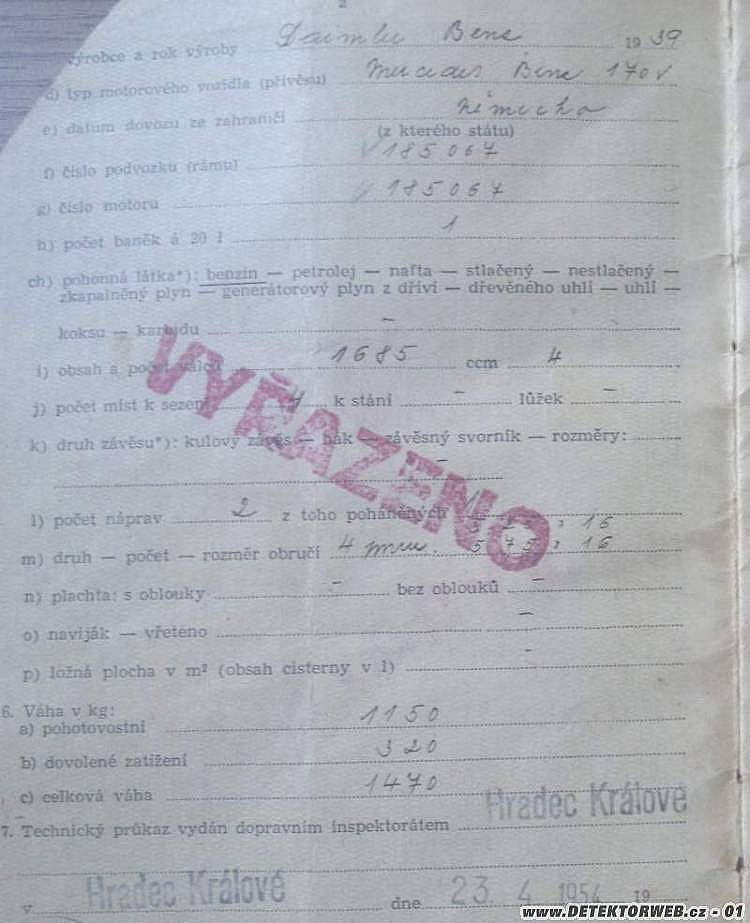 2
výrobce a rok výroby Daimler Benz 1939
d) typ motorového vozidla (přívěsu) Mercedes Benz 170V
e) datum dovozu ze zahraničí Německo
(z kterého státu)
f) číslo podvozku (rámu) 185067
g) číslo motoru 185067
h) počet baněk á 20 l 1
ch) pohonná látka*): benzin — petrolej — nafta — stlačený — nestlačený —
zkapalněný plyn — generátorový plyn z dříví — dřevěného uhlí — uhlí —
koksu — karbidu –
i) obsah a počet válců 1685 ccm 4
j) počet míst k sezení 4 k stání – lůžek –
k) druh závěsu*): kulový závěs — hák — závěsný svorník — rozměry:
–
VYŘAZENO
l) počet náprav 2 z toho poháněných
m) druh — počet — rozměr obručí 4 16
n) plachta: s oblouky – bez oblouků –
o) naviják — vřeteno –
p) ložná plocha v m² (obsah cisterny v l) –
6. Váha v kg:
a) pohotovostní 1150
b) dovolené zatížení 320
c) celková váha 1470
7. Technický průkaz vydán dopravním inspektorátem Hradec Králové
v Hradec Králové dne 23. 4. 1954 19
www.DETEKTORWEB.cz - 01